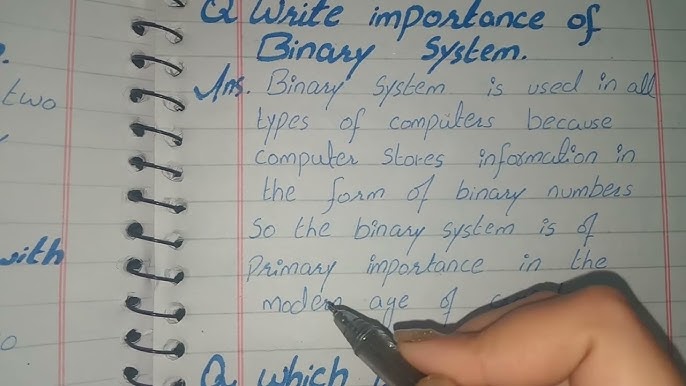 .
two
with
o
Q Write importance of
Binary System.
Ans. Binary System is used in all
types of computers because
computer stores information in
the form of binary numbers
So the binary system is of
Primary importance in the
modern age of
Q which